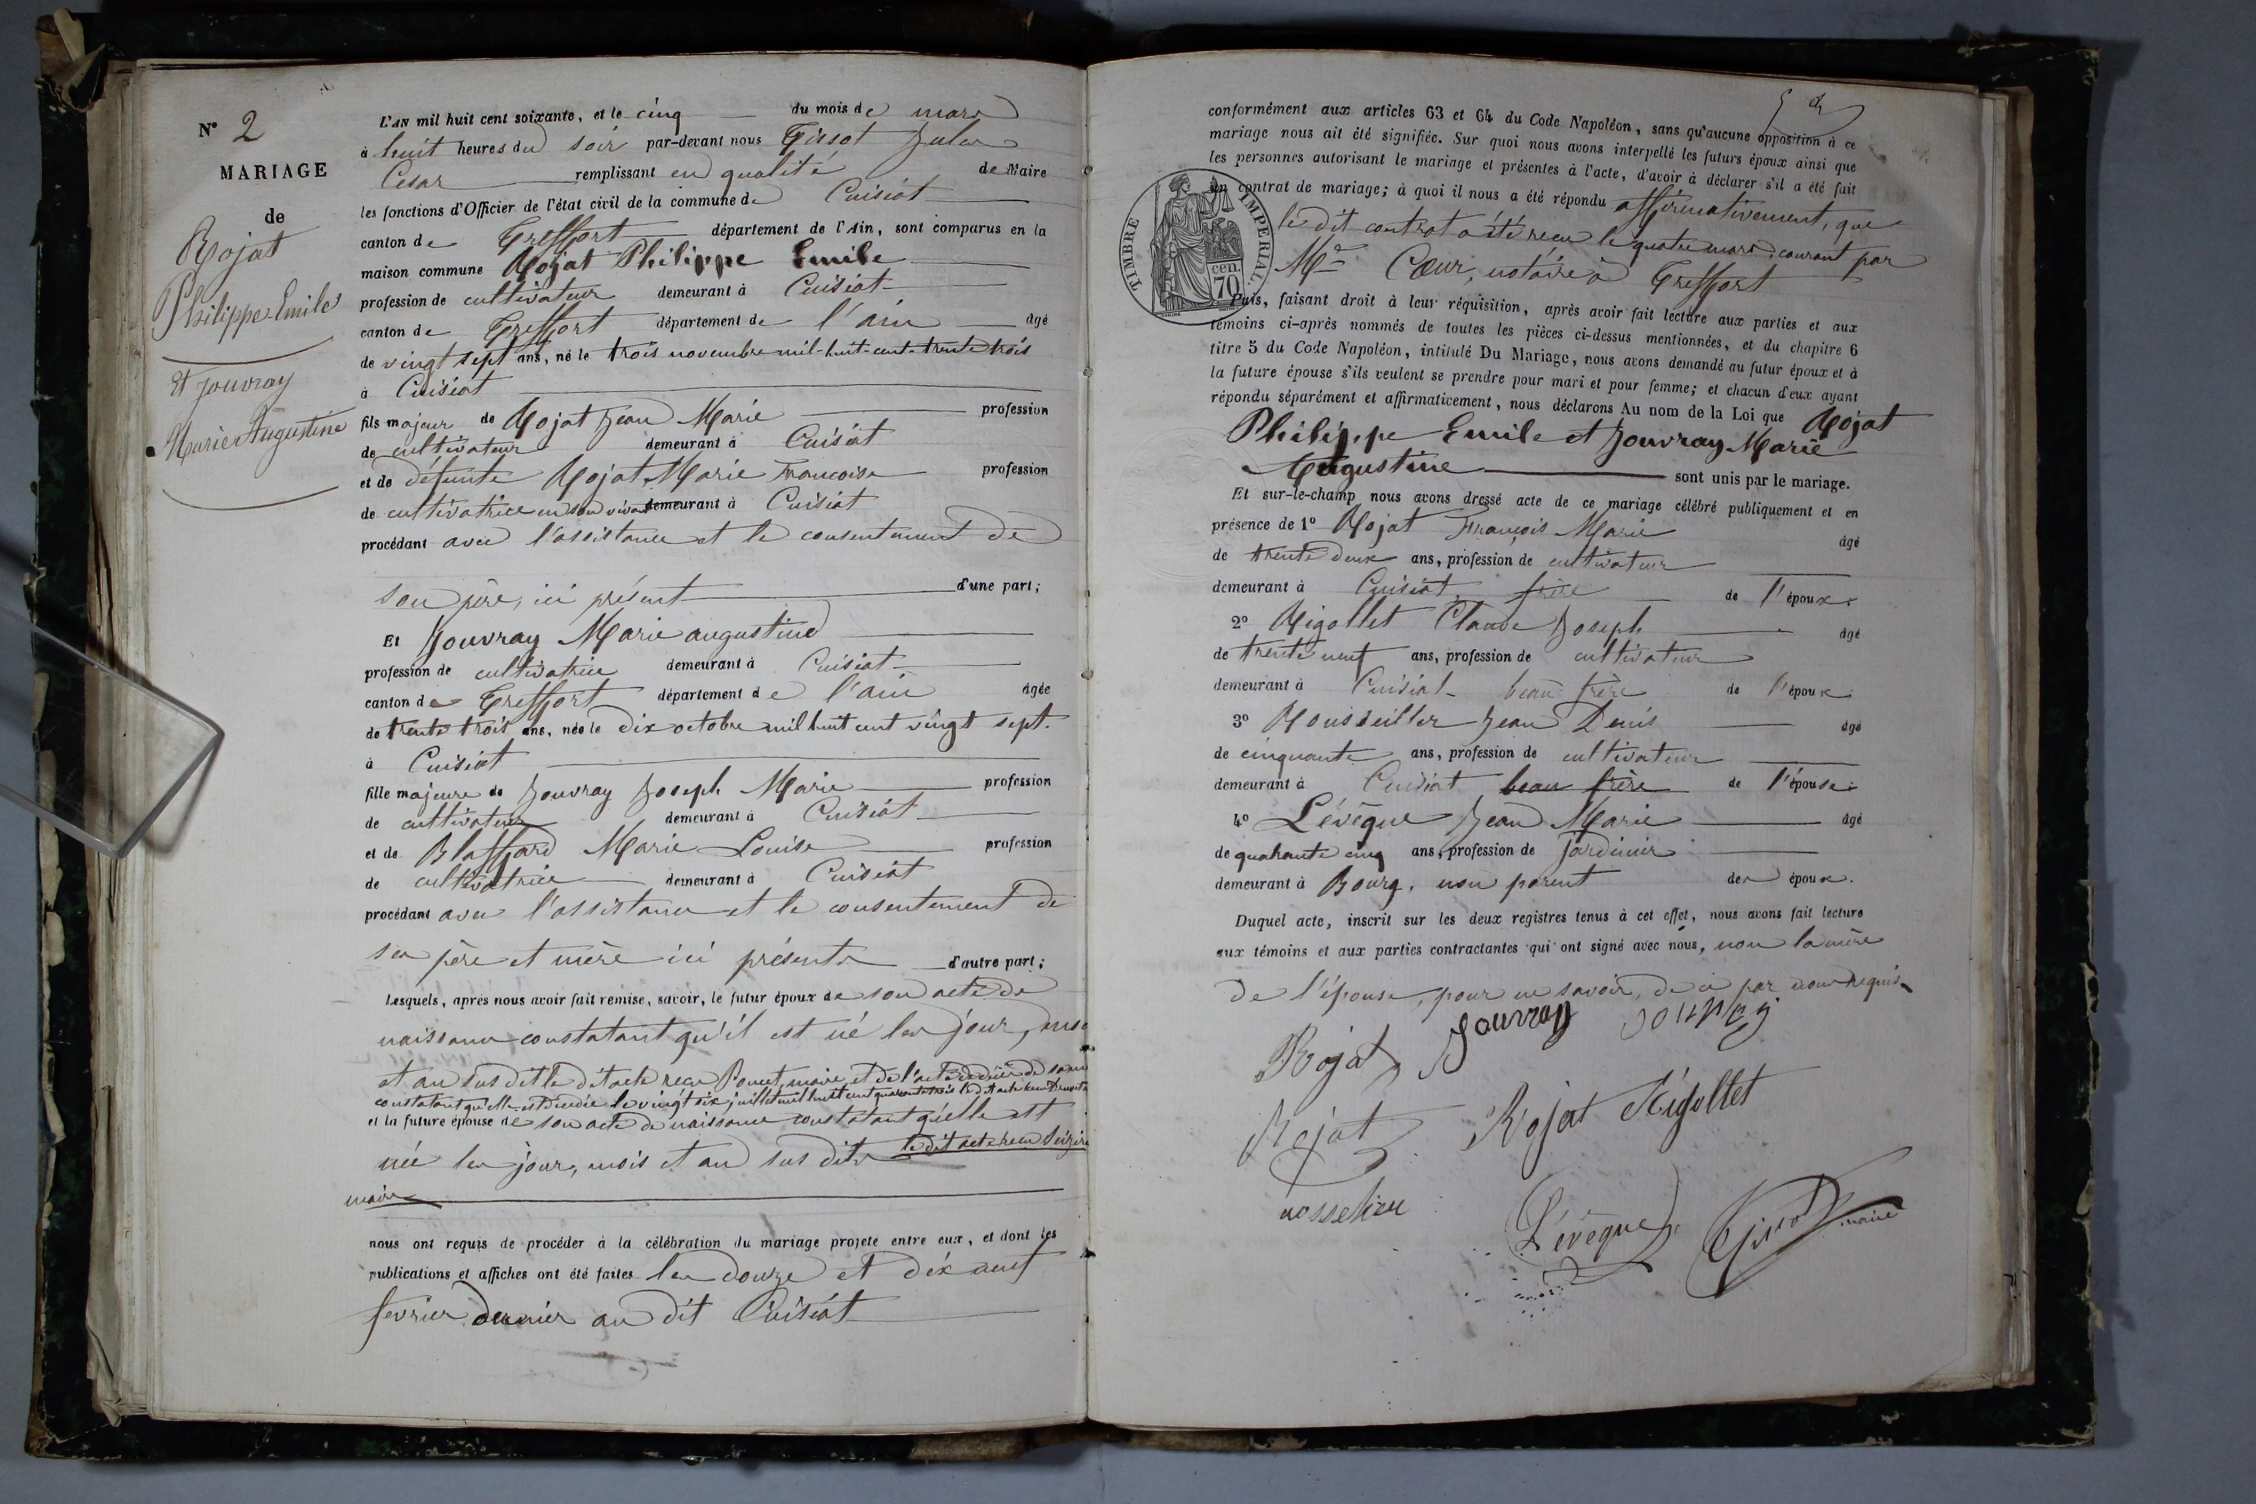 N° 2
MARIAGE
de
Rojat
Philippe Emile
Et Jouvray
Marie Augustine
L'an mil huit cent soixante, et le cinq du mois de mars
à huit heures du soir par-devant nous Tirsot Jules
César remplissant en qualité de Maire
les fonctions d'Officier de l'état civil de la commune de Cuisiat
canton de Treffort département de l'Ain, sont comparus en la
maison commune Rojat Philippe Emile
profession de cultivateur demeurant à Cuisiat
canton de Treffort département de l'ain âgé
de vingt sept ans, né le trois novembre mil-huit-cent-trente trois
à Cuisiat
fils majeur de Rojat Jean Marie profession
de cultivateur demeurant à Cuisiat
et de défunte Rojat Marie Françoise profession
de cultivatrice en son vivant demeurant à Cuisiat
procédant avec l'assistance et le consentement de
son père, ici présent d'une part;
Et Jouvray Marie augustine
profession de cultivatrice demeurant à Cuisiat
canton de Treffort département de l'ain âgée
de trente trois ans, née le dix octobre mil huit cent vingt sept.
à Cuisiat
fille majeure de Jouvray Joseph Marie profession
de cultivateur demeurant à Cuisiat
et de Blaffard Marie Louise profession
de cultivatrice demeurant à Cuisiat
procédant avec l'assistance et le consentement de
ses père et mère ici présents d'autre part;
Lesquels, après nous avoir fait remise, savoir, le futur époux de son acte de
naissance constatant qu'il est né les jour, mois
et an sus dits le dit acte reçu Poncet, maire, et de l'acte de décès de sa mère
constatant qu'elle est décédée le vingt six juillet mil huit cent quarante trois le dit acte reçu
et la future épouse de son acte de naissance constatant qu'elle est
née les jour, mois et an sus dits le dit acte reçu
maire
nous ont requis de procéder à la célébration du mariage projeté entre eux, et dont les
publications et affiches ont été faites les douze et dix neuf
fevrier dernier au dit Cuisiat
conformément aux articles 63 et 64 du Code Napoléon, sans qu'aucune opposition à ce
mariage nous ait été signifiée. Sur quoi nous avons interpellé les futurs époux ainsi que
les personnes autorisant le mariage et présentes à l'acte, d'avoir à déclarer s'il a été fait
un contrat de mariage; à quoi il nous a été répondu affirmativement, que
le dit contrat a été reçu le quatre mars courant par
Me Cœur, notaire à Treffort
TIMBRE IMPERIAL
70 cen.
Puis, faisant droit à leur réquisition, après avoir fait lecture aux parties et aux
témoins ci-après nommés de toutes les pièces ci-dessus mentionnées, et du chapitre 6
titre 5 du Code Napoléon, intitulé Du Mariage, nous avons demandé au futur époux et à
la future épouse s'ils veulent se prendre pour mari et pour femme; et chacun d'eux ayant
répondu séparément et affirmativement, nous déclarons Au nom de la Loi que Rojat
Philippe Emile et Jouvray Marie
Augustine sont unis par le mariage.
Et sur-le-champ nous avons dressé acte de ce mariage célébré publiquement et en
présence de 1° Rojat François Marie âgé
de trente deux ans, profession de cultivateur
demeurant à Cuisiat, frère de l'époux.
2° Rigollet Claude Joseph âgé
de trente neuf ans, profession de cultivateur
demeurant à Cuisiat beau frère de l'époux
3° Rousseiller Jean Denis âgé
de cinquante ans, profession de cultivateur
demeurant à Cuisiat beau frère de l'épouse.
4° Lévêque Jean Marie âgé
de quarante cinq ans, profession de jardinier
demeurant à Bourg, non parent des époux.
Duquel acte, inscrit sur les deux registres tenus à cet effet, nous avons fait lecture
aux témoins et aux parties contractantes qui ont signé avec nous, non la mère
de l'épouse, pour ne savoir, de ce par nous requis.
Rojat Jouvray Jouvray
Rojat Rojat Rigollet
Lévêque Tirsot maire